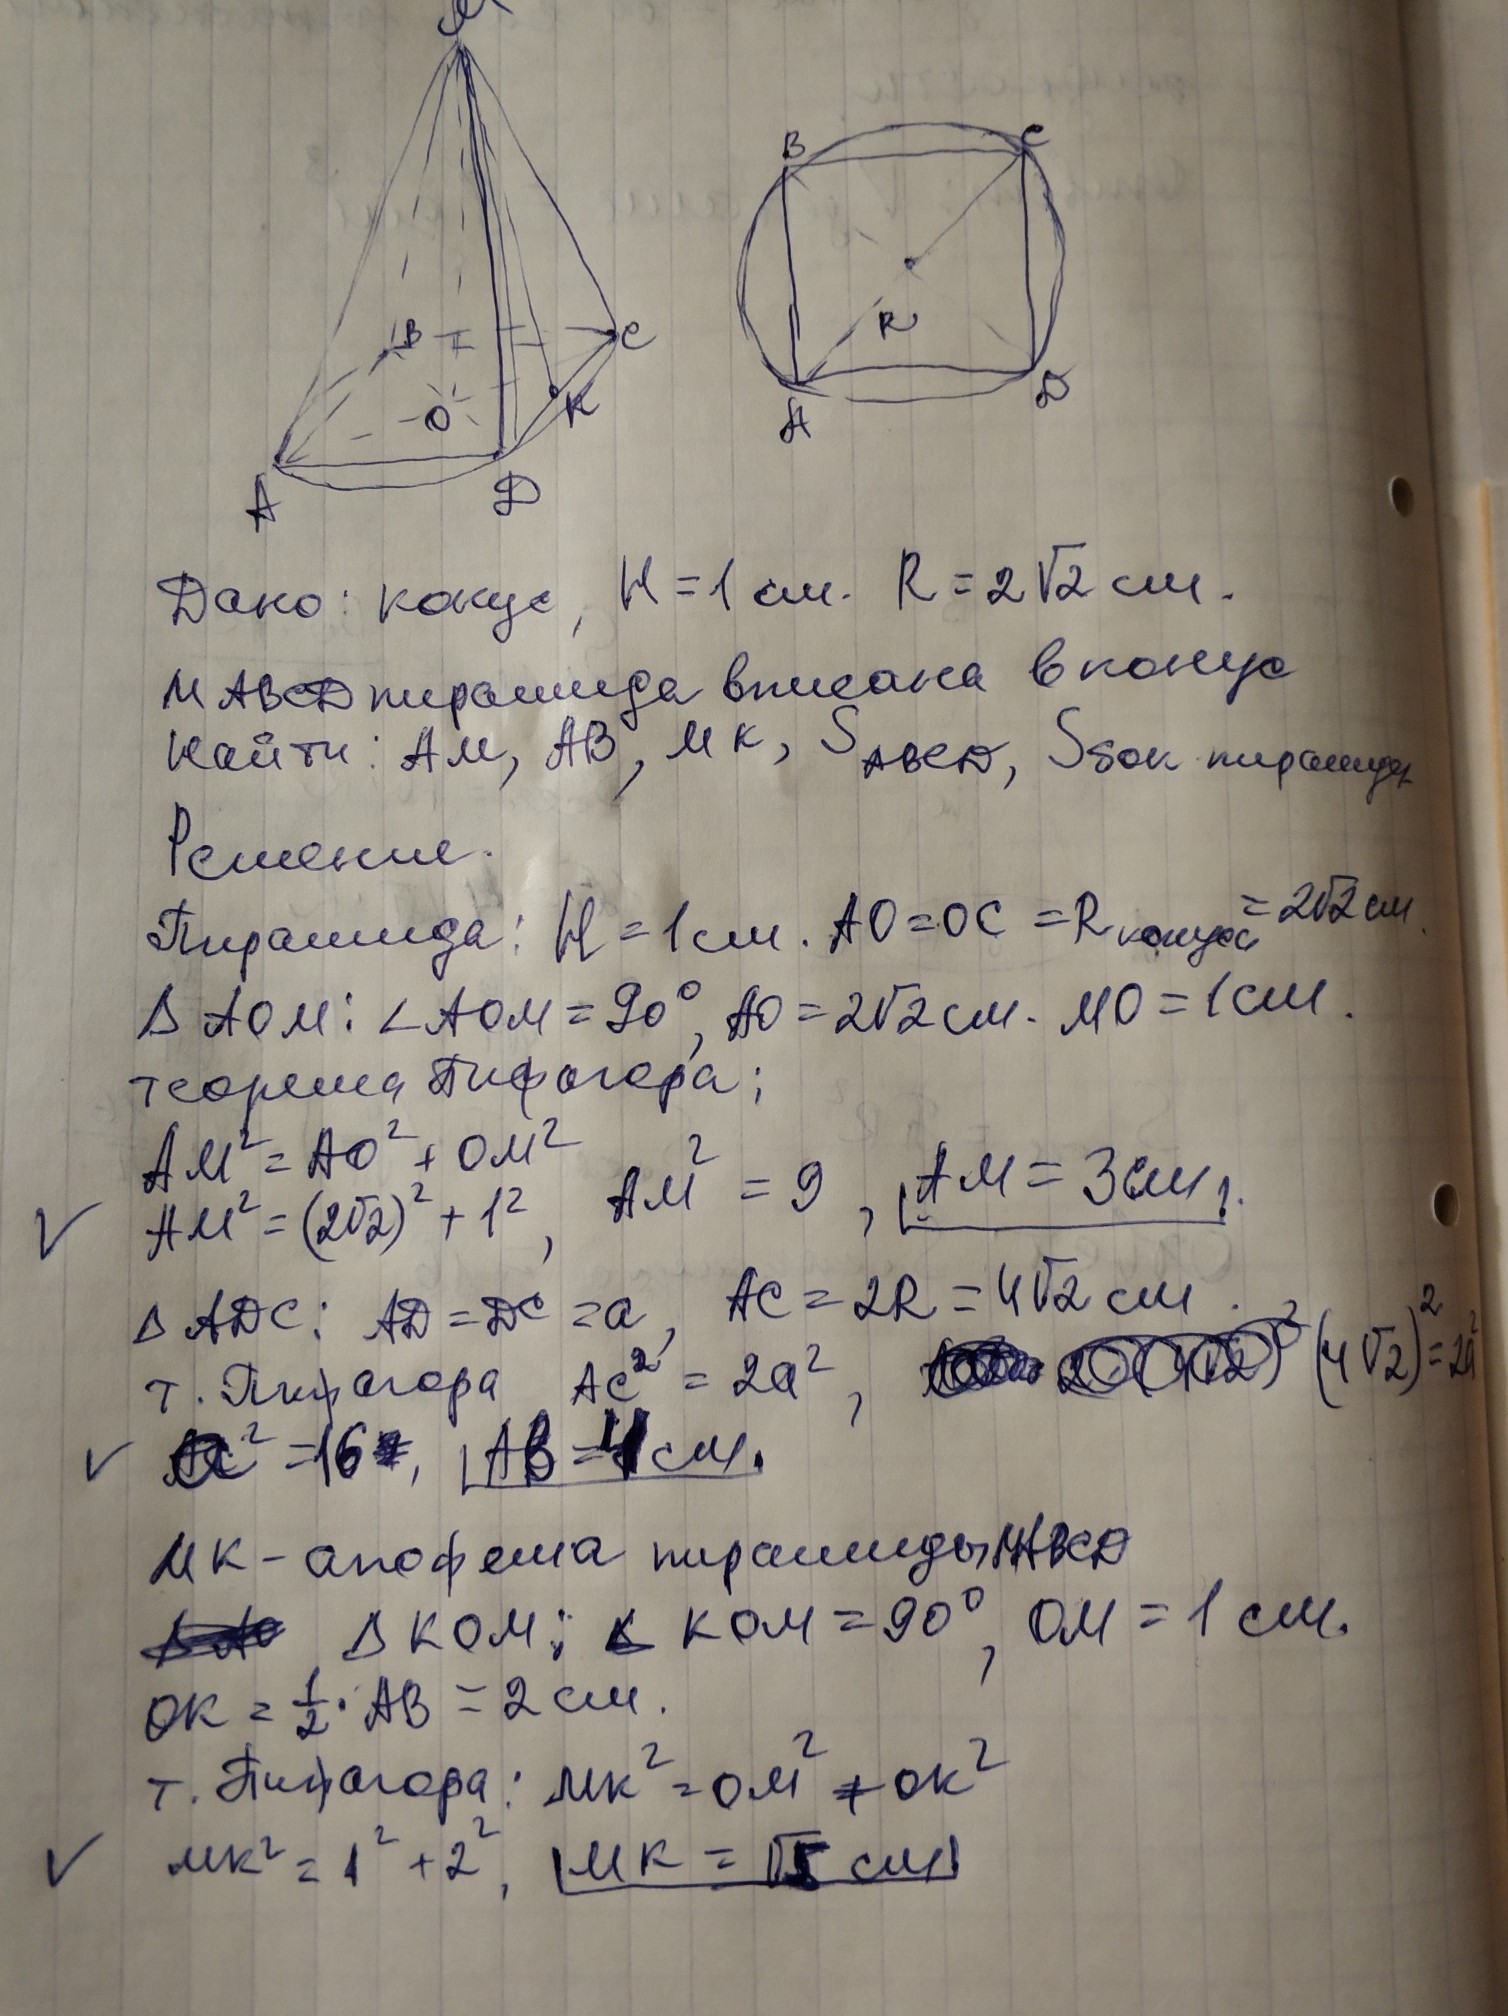 M
B
C
O
K
A
D
B
C
R
A
D
Дано: конус, H = 1 см. R = 2√2 см.
MABCD пирамида вписана в конус
Найти: AM, AB, MK, S ABCD, S бок пирамиды
Решение.
Пирамида: H = 1 см. AO = OC = R конуса = 2√2 см.
Δ AOM: ∠AOM = 90°, AO = 2√2 см. MO = 1 см.
теорема Пифагора:
AM² = AO² + OM²
AM² = (2√2)² + 1², AM² = 9, AM = 3 см.
Δ ADC: AD = DC = a, AC = 2R = 4√2 см.
т. Пифагора AC² = 2a², (4√2)² = 2a²
a² = 16, AB = 4 см.
MK – апофема пирамиды MABCD
Δ KOM: ∠ KOM = 90°, OM = 1 см.
OK = 1/2 · AB = 2 см.
т. Пифагора: MK² = OM² + OK²
MK² = 1² + 2², MK = √5 см